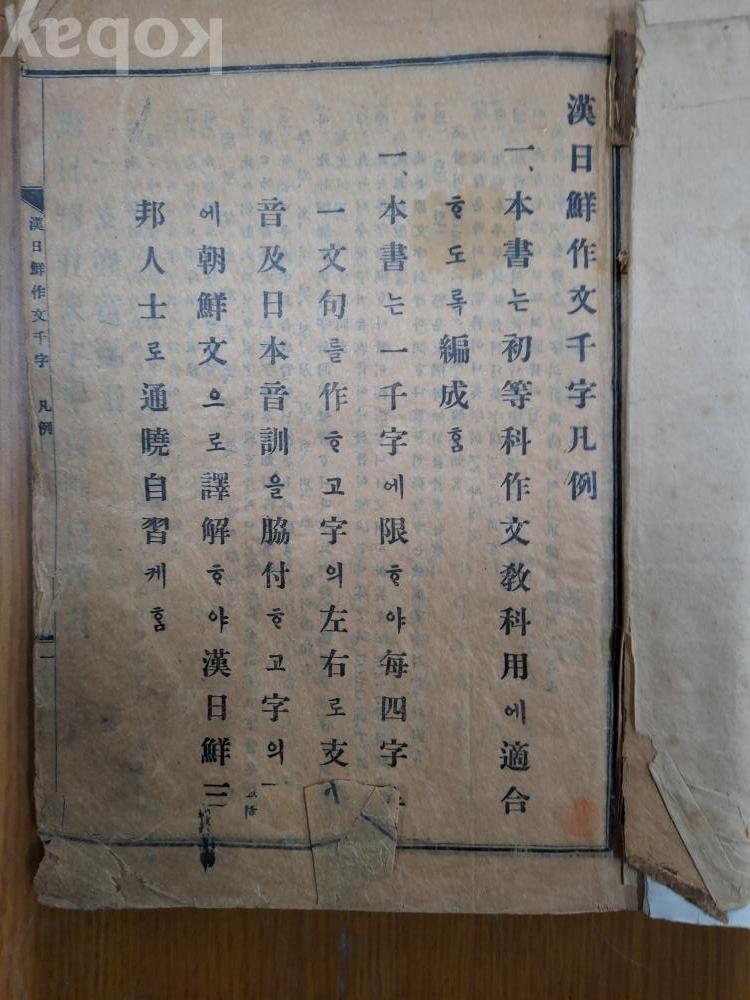 漢日鮮作文千字凡例
一、本書는初等科作文敎科用에適合
ᄒᆞ도록編成홈
一、本書는一千字에限ᄒᆞ야每四字
一文句를作ᄒᆞ고字의左右로支
音及日本音訓을脇付ᄒᆞ고字의
에朝鮮文으로譯解ᄒᆞ야漢日鮮三
邦人士로通曉自習케홈
漢日鮮作文千字 凡例 一
kobay